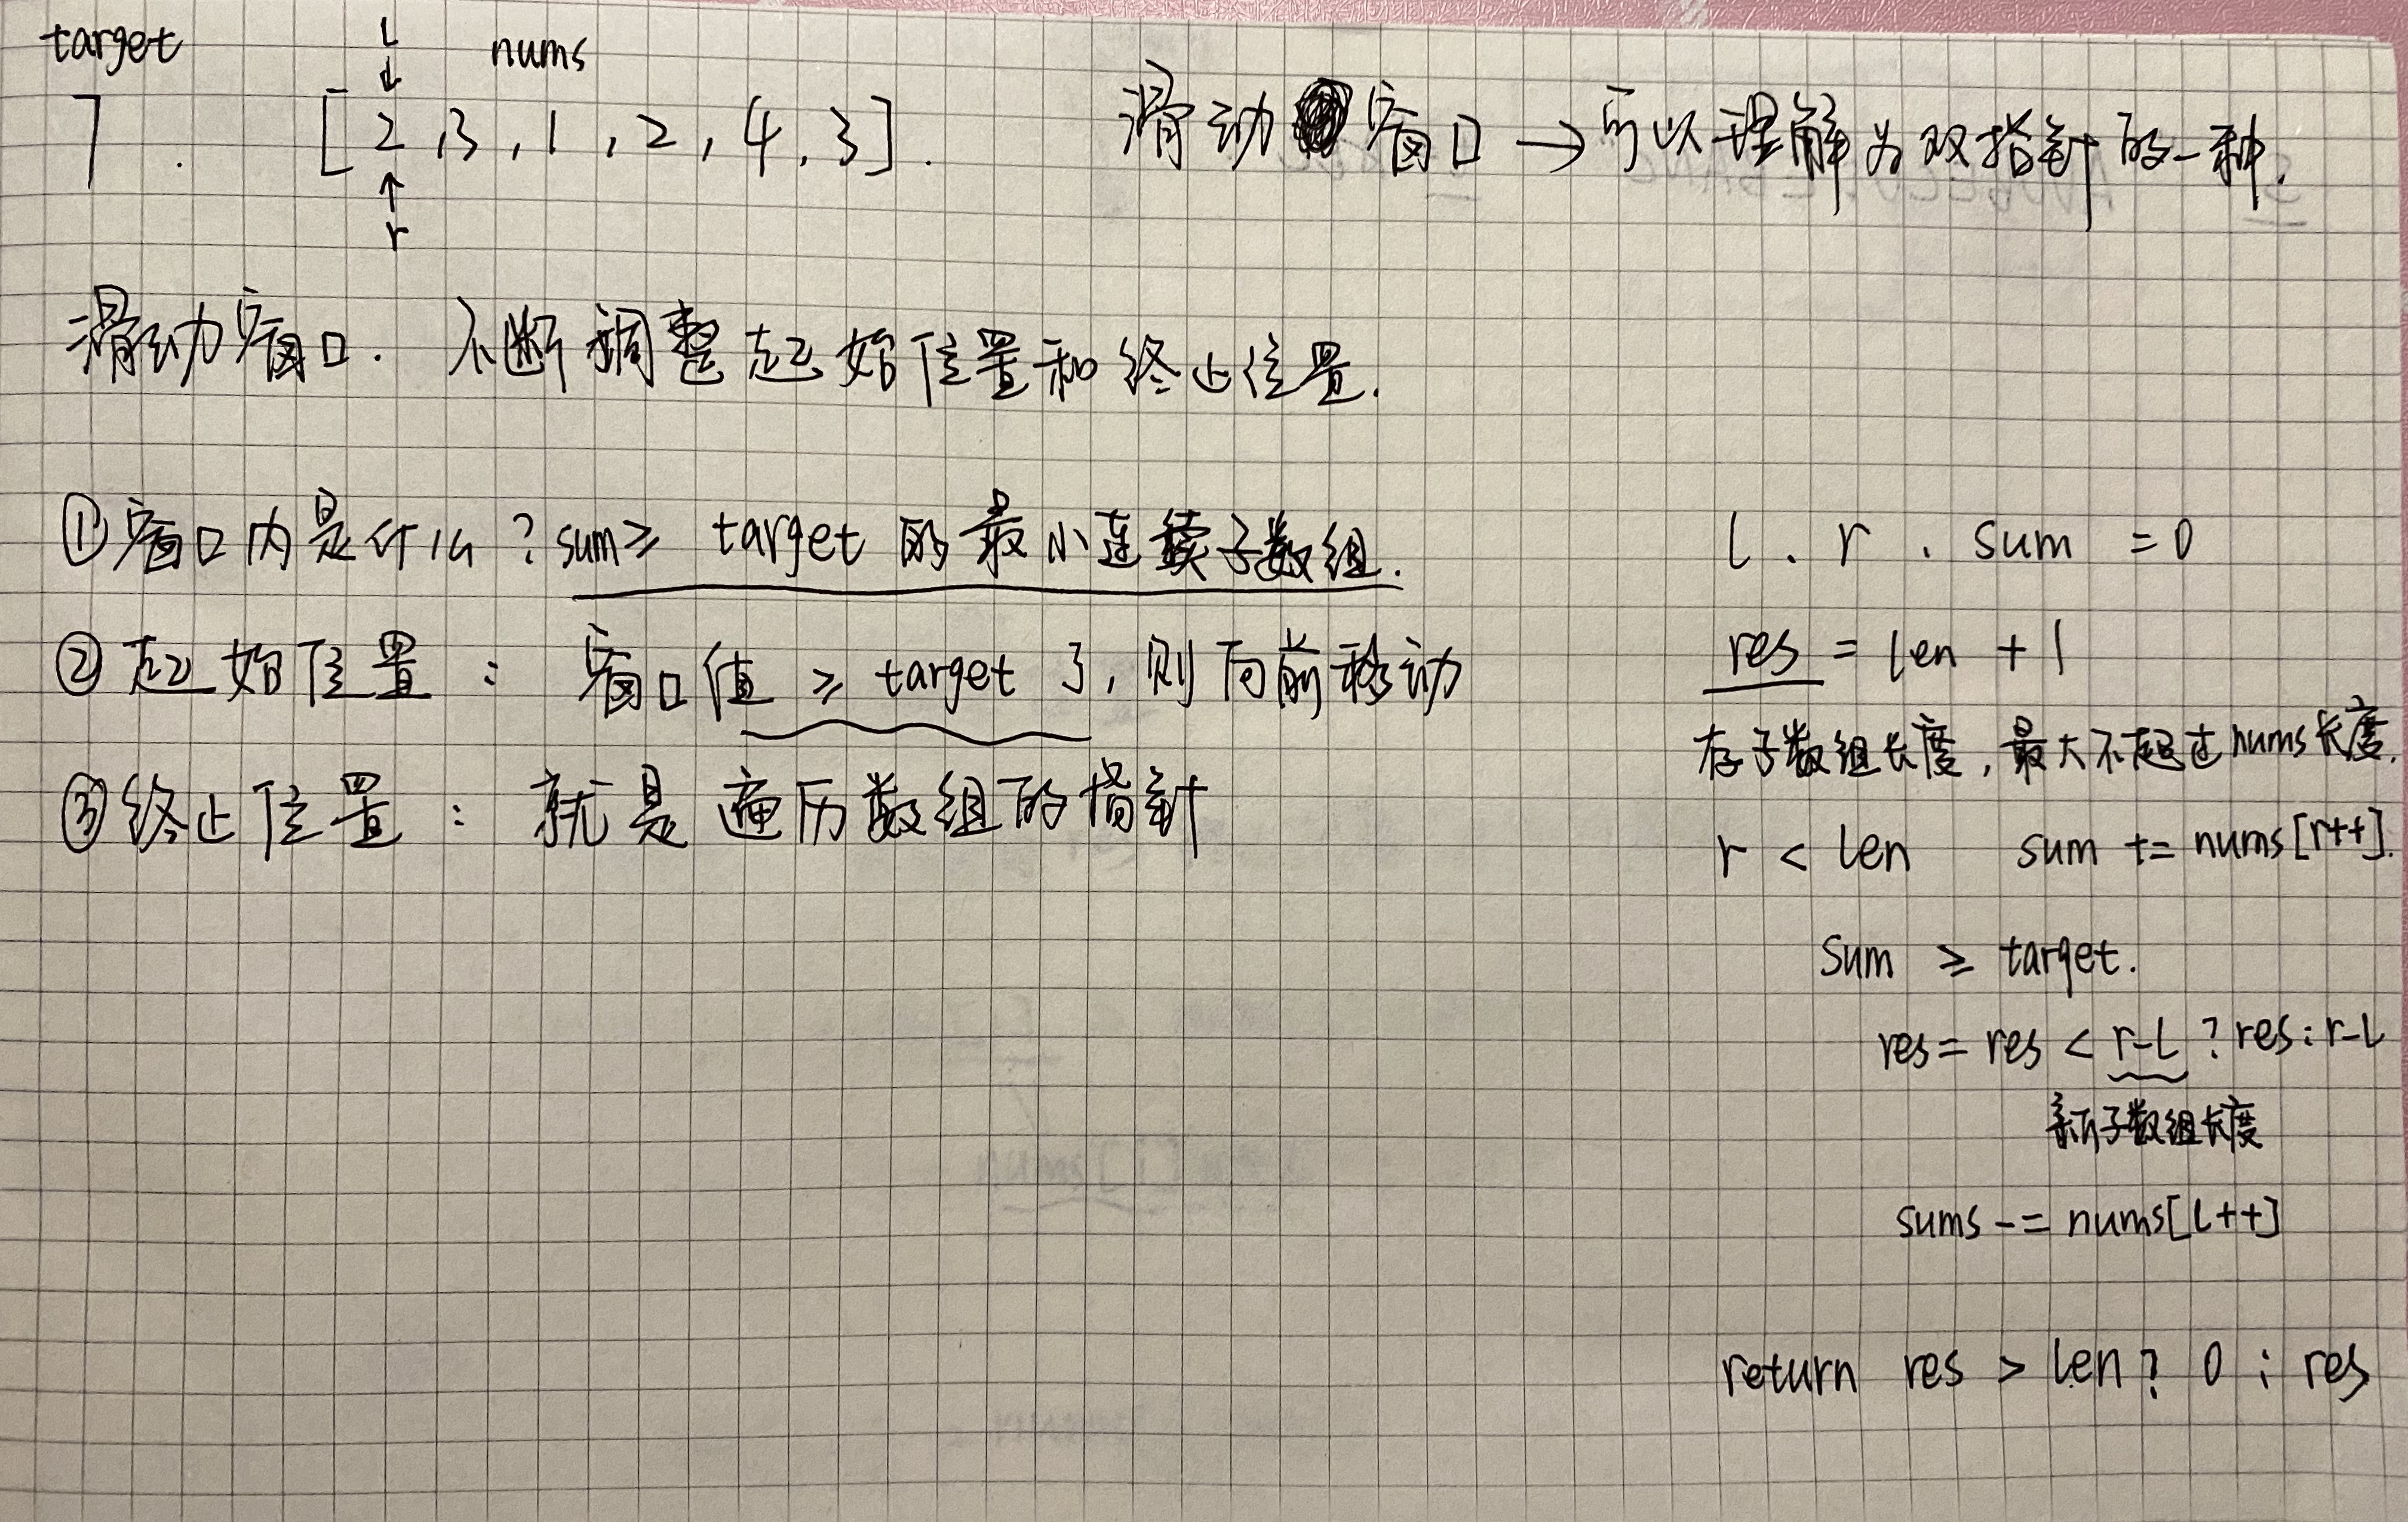 target l nums
7 . [ 2 , 3 , 1 , 2 , 4 , 3 ] .
r
滑动窗口 → 可以理解为双指针的一种.
滑动窗口. 不断调整起始位置和终止位置.
①窗口内是什么?sum≥ target 的最小连续子数组.
②起始位置: 窗口值 ≥ target 了,则向前移动
③终止位置: 就是遍历数组的指针
l . r . sum = 0
res = len + 1
存子数组长度,最大不超过nums长度.
r < len sum += nums[r++].
sum ≥ target.
res = res < r-l ? res : r-l
新子数组长度
sums -= nums[l++]
return res > len ? 0 : res